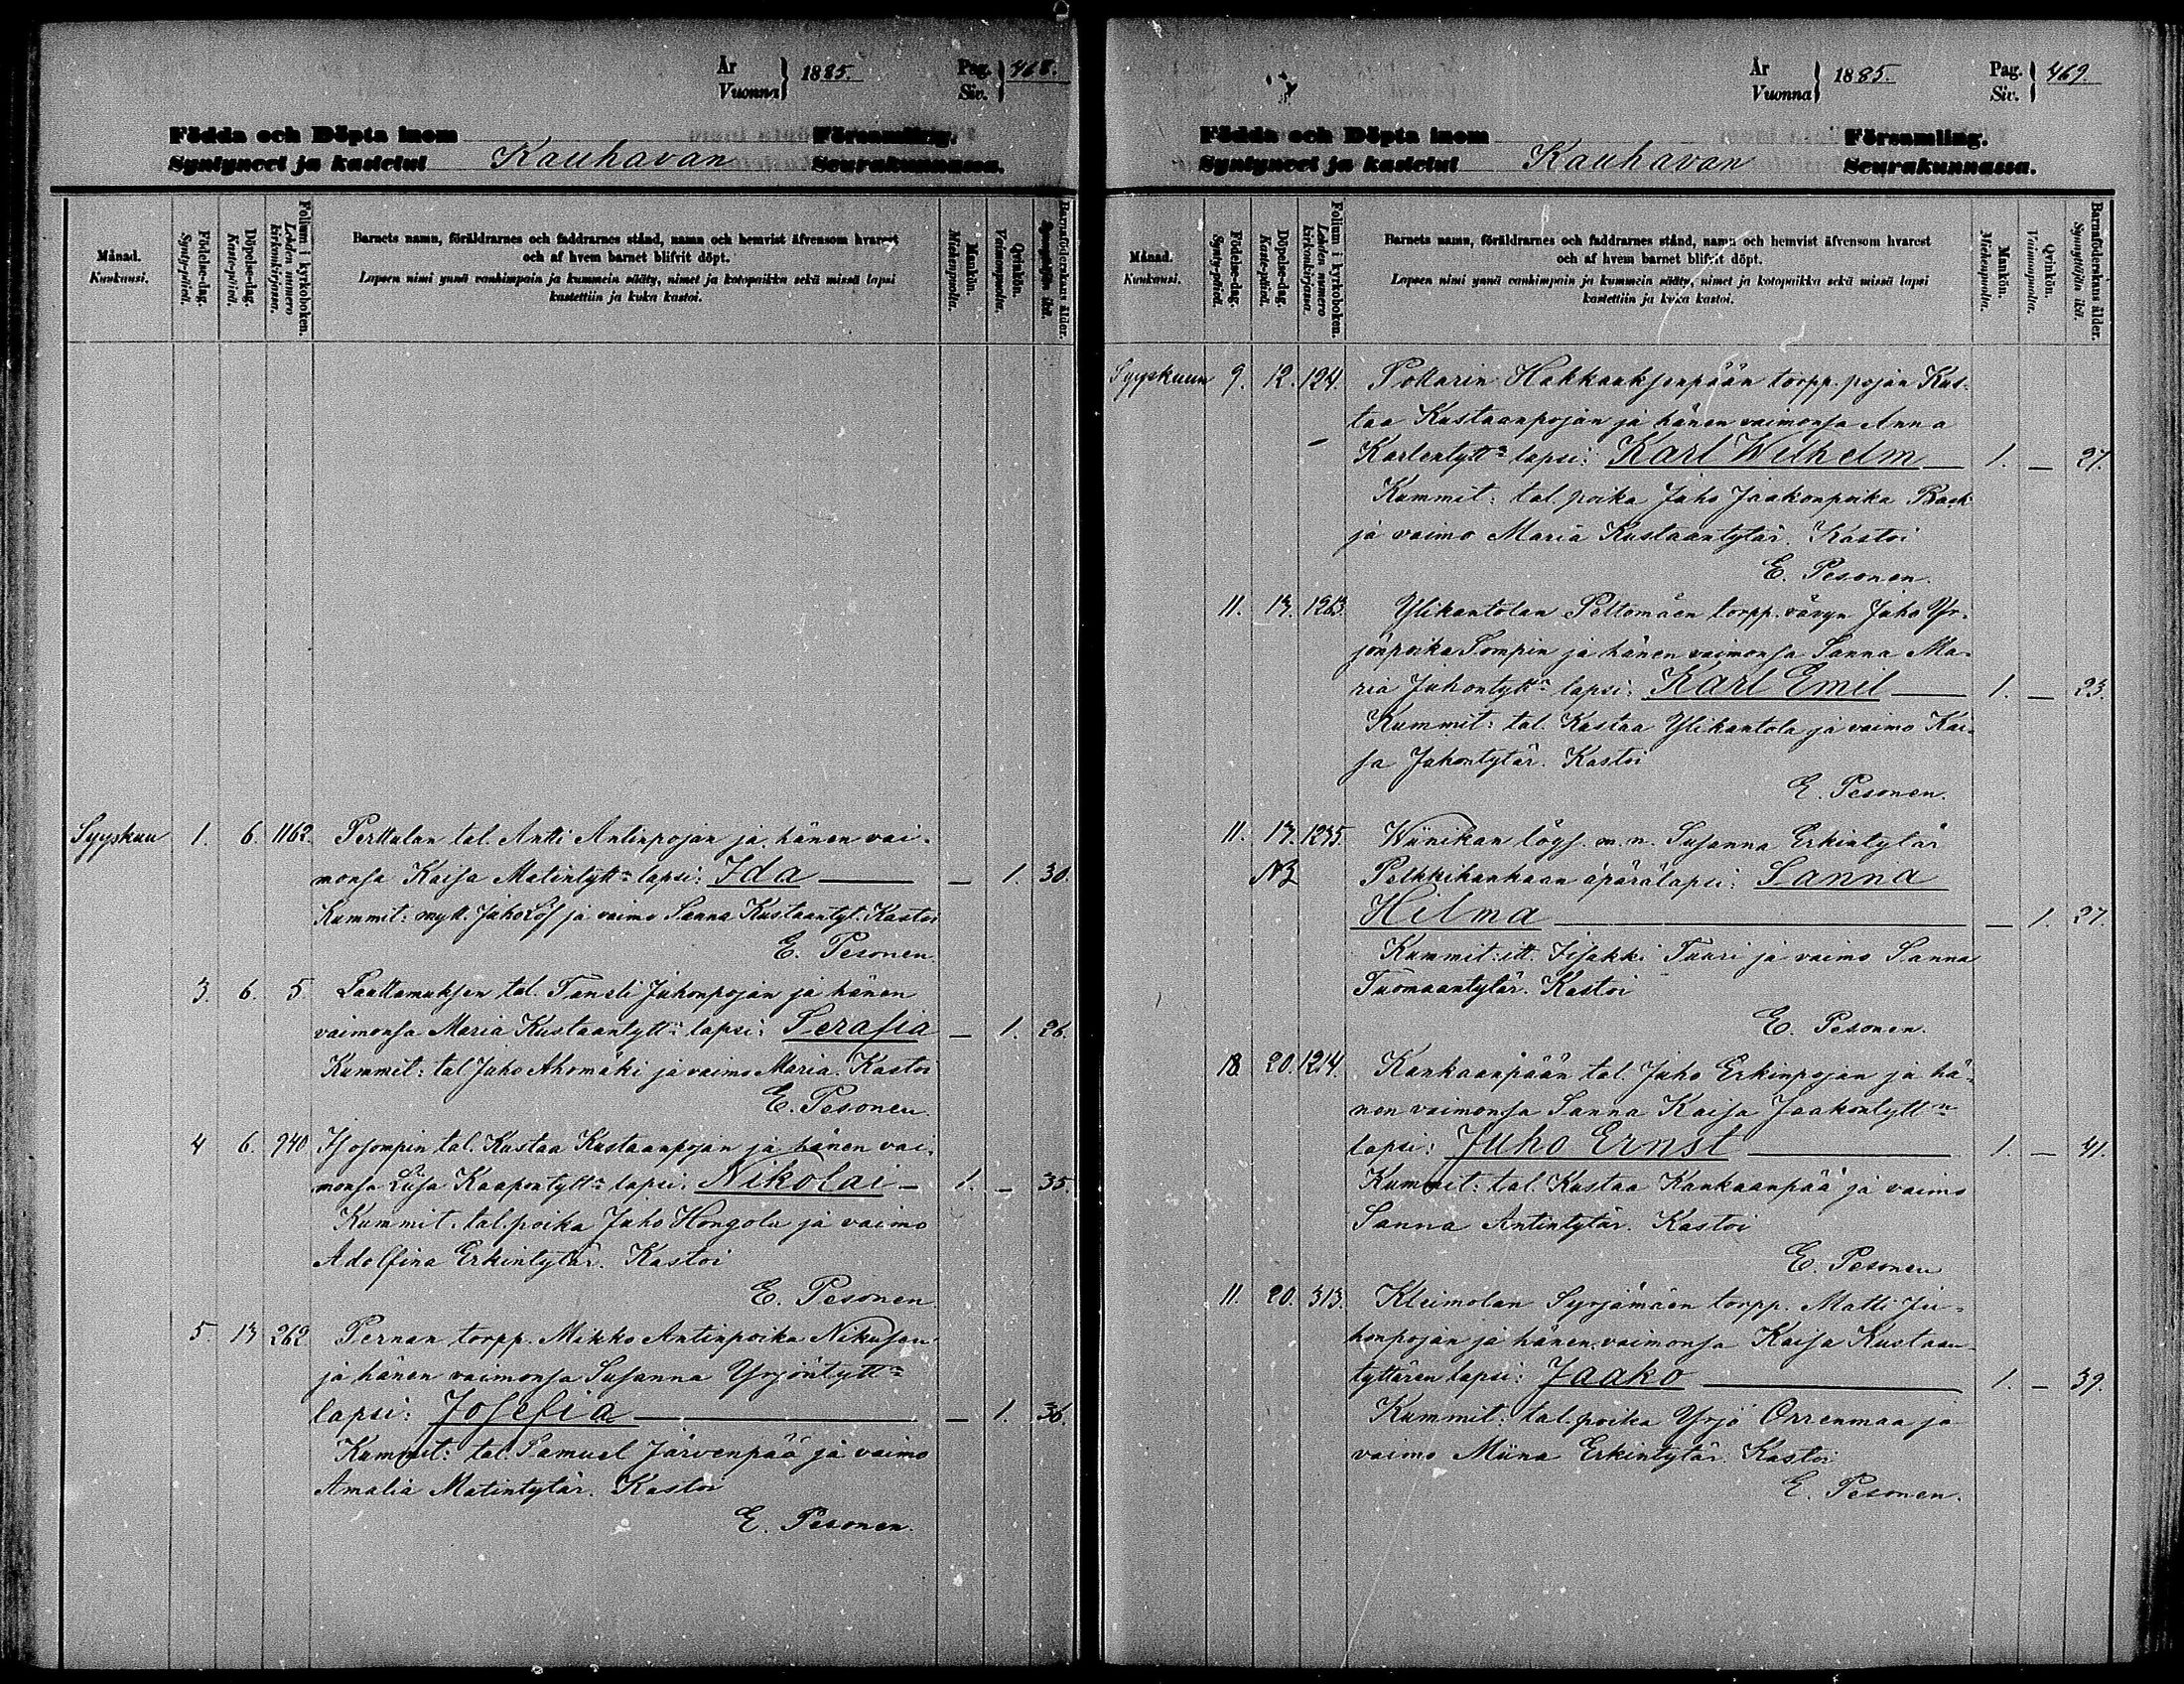 År
Vuonna } 1885.
Pag.
Siv. } 468.
Födda och Döpta inom Församling.
Syntyneet ja kastetut Kauhavan Seurakunnassa.
Månad.
Kuukausi.
Födelse-dag.
Synty-päivä.
Döpelse-dag.
Kaste-päivä.
Folium i kyrkoboken.
Lehden numero kirkonkirjassa.
Barnets namn, föräldrarnes och faddrarnes stånd, namn och hemvist äfvensom hvarest
och af hvem barnet blifvit döpt.
Lapsen nimi ynnä vanhimpain ja kummein sääty, nimet ja kotopaikka sekä missä lapsi
kastettiin ja kuka kastoi.
Mankön.
Miehenpuolta.
Qvinkön.
Vaimonpuolta.
Barnaföderskans ålder.
Synnyttäjän ikä.
Syyskuu 1. 6. 1162. Perttulan tal. Antti Antinpojan ja hänen vai-
monsa Kaisa Matintytt:n lapsi: Ida — — 1. 30.
Kummit: mytt. Juho Löf ja vaimo Sanna Kustaantyt. Kastoi
E. Pesonen.
3. 6. 5 Laattamuksen tal. Taneli Juhonpojan ja hänen
vaimonsa Maria Kustaantytt:n lapsi: Serafia — 1. 26.
Kummit: tal Juho Ahomäki ja vaimo Maria. Kastoi
E. Pesonen.
4 6. 940 Isosompin tal. Kustaa Kustaanpojan ja hänen vai-
monsa Liisa Kaapontytt:n lapsi: Nikolai — 1. — 35.
Kummit: tal. poika Juho Hongola ja vaimo
Adolfina Erkintytär. Kastoi
E. Pesonen.
5. 13 262 Pernan torpp. Mikko Antinpoika Nikusen
ja hänen vaimonsa Susanna Yrjöntytt:n
lapsi: Josefia — — 1. 36.
Kummit: tal. Samuel Järvenpää ja vaimo
Amalia Matintytär. Kastoi
E. Pesonen.
År
Vuonna } 1885.
Pag.
Siv. } 469.
Födda och Döpta inom Församling.
Syntyneet ja kastetut Kauhavan Seurakunnassa.
Månad.
Kuukausi.
Födelse-dag.
Synty-päivä.
Döpelse-dag.
Kaste-päivä.
Folium i kyrkoboken.
Lehden numero kirkonkirjassa.
Barnets namn, föräldrarnes och faddrarnes stånd, namn och hemvist äfvensom hvarest
och af hvem barnet blifvit döpt.
Lapsen nimi ynnä vanhimpain ja kummein sääty, nimet ja kotopaikka sekä missä lapsi
kastettiin ja kuka kastoi.
Mankön.
Miehenpuolta.
Qvinkön.
Vaimonpuolta.
Barnaföderskans ålder.
Synnyttäjän ikä.
Syyskuun 9. 12. 124. Pottarin Hakkauksenpään torpp. pojan Kus-
taa Kustaanpojan ja hänen vaimonsa Anna
Karlentytt:n lapsi: Karl Wilhelm — 1. — 27.
Kummit: tal. poika Juho Jaakonpoika Back
ja vaimo Maria Kustaantytär. Kastoi
E. Pesonen.
11. 13. 1263. Ylikantolan Peltomäen torpp. vävyn Juho Yr-
jönpoika Sompin ja hänen vaimonsa Sanna Ma-
ria Juhontytt:n lapsi: Karl Emil — 1. — 23.
Kummit: tal. Kustaa Ylikantola ja vaimo Kai-
sa Juhontytär. Kastoi
E. Pesonen.
11. 13. 1235. Wiinikan löys. m. n. Susanna Erkintytär
NB Pelkkikankaan äpärälapsi: Sanna
Hilma — — 1. 27.
Kummit: itt. Iisakki Tuuri ja vaimo Sanna
Tuomaantytär. Kastoi
E. Pesonen.
18. 20. 1214. Kankaanpään tal. Juho Erkinpojan ja hä-
nen vaimonsa Sanna Kaisa Jaakontytt:n
lapsi: Juho Ernst — 1. — 41.
Kummit: tal. Kustaa Kankaanpää ja vaimo
Sanna Antintytär. Kastoi
E. Pesonen
11. 20. 313. Kleimolan Syrjämäen torpp. Matti Ju-
honpojan ja hänen vaimonsa Kaisa Kustaan-
tyttären lapsi: Jaako — 1. — 39.
Kummit: tal. poika Yrjö Orrenmaa ja
vaimo Miina Erkintytär. Kastoi
E. Pesonen.